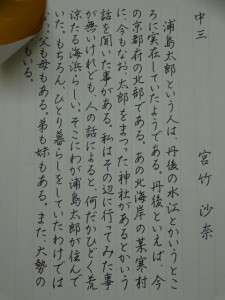 中三　宮竹 沙奈
浦島太郎という人は、丹後の水江とかいうとこ
ろに実在していたようである。丹後といえば、今
の京都府の北部である。あの北海岸の某寒村
に、今もなお、太郎をまつった神社があるとかいう
話を聞いた事がある。私はその辺に行ってみた事
が無いけれども、人の話によると、何だかひどく荒
涼たる海浜らしい。そこにわが浦島太郎が住んで
いた。もちろん、ひとり暮らしをしていたわけでは
い。父も母もある。弟も妹もある。また、大勢の
もいる。